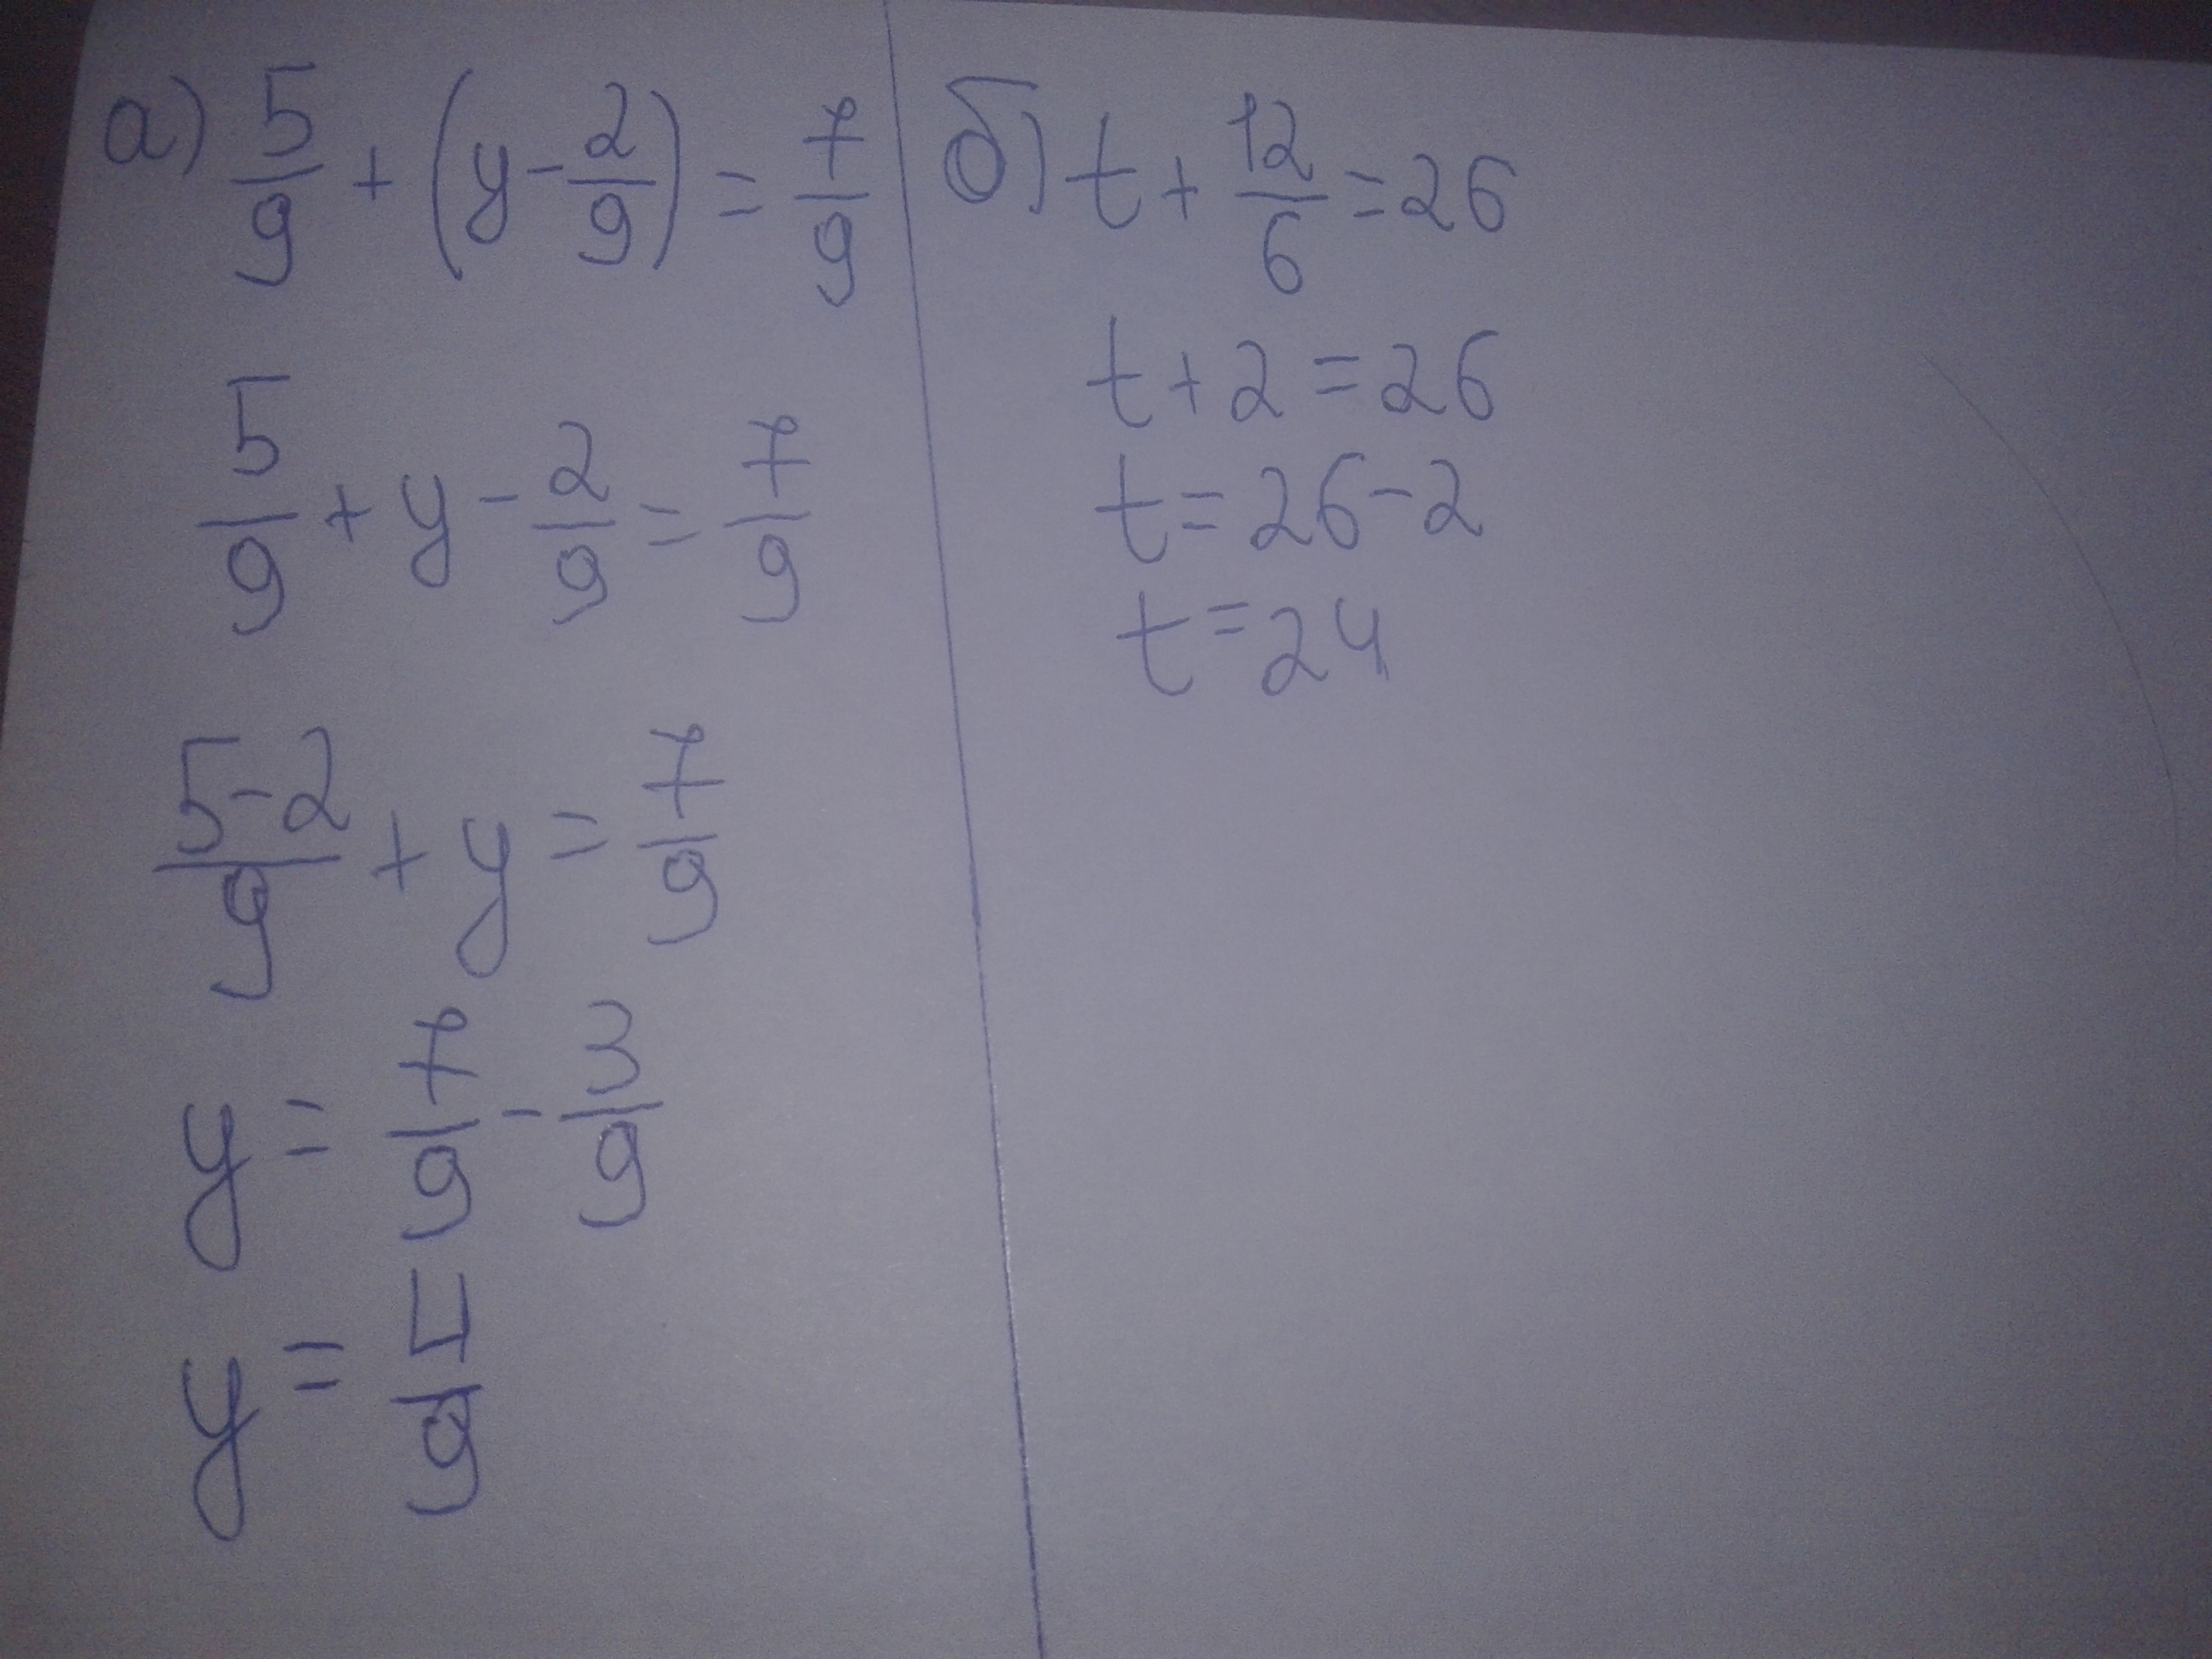 а) 5/9 + (y - 2/9) = 7/9
5/9 + y - 2/9 = 7/9
5-2/9 + y = 7/9
y = 7/9 - 3/9
y = 4/9
б) t + 12/6 = 26
t + 2 = 26
t = 26 - 2
t = 24